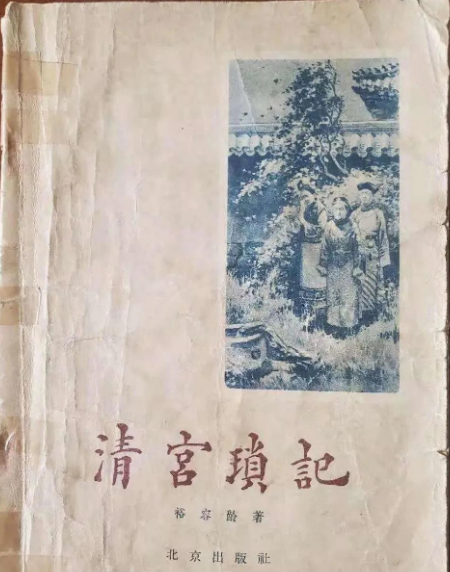 清宮瑣記
裕容齡著
北京出版社